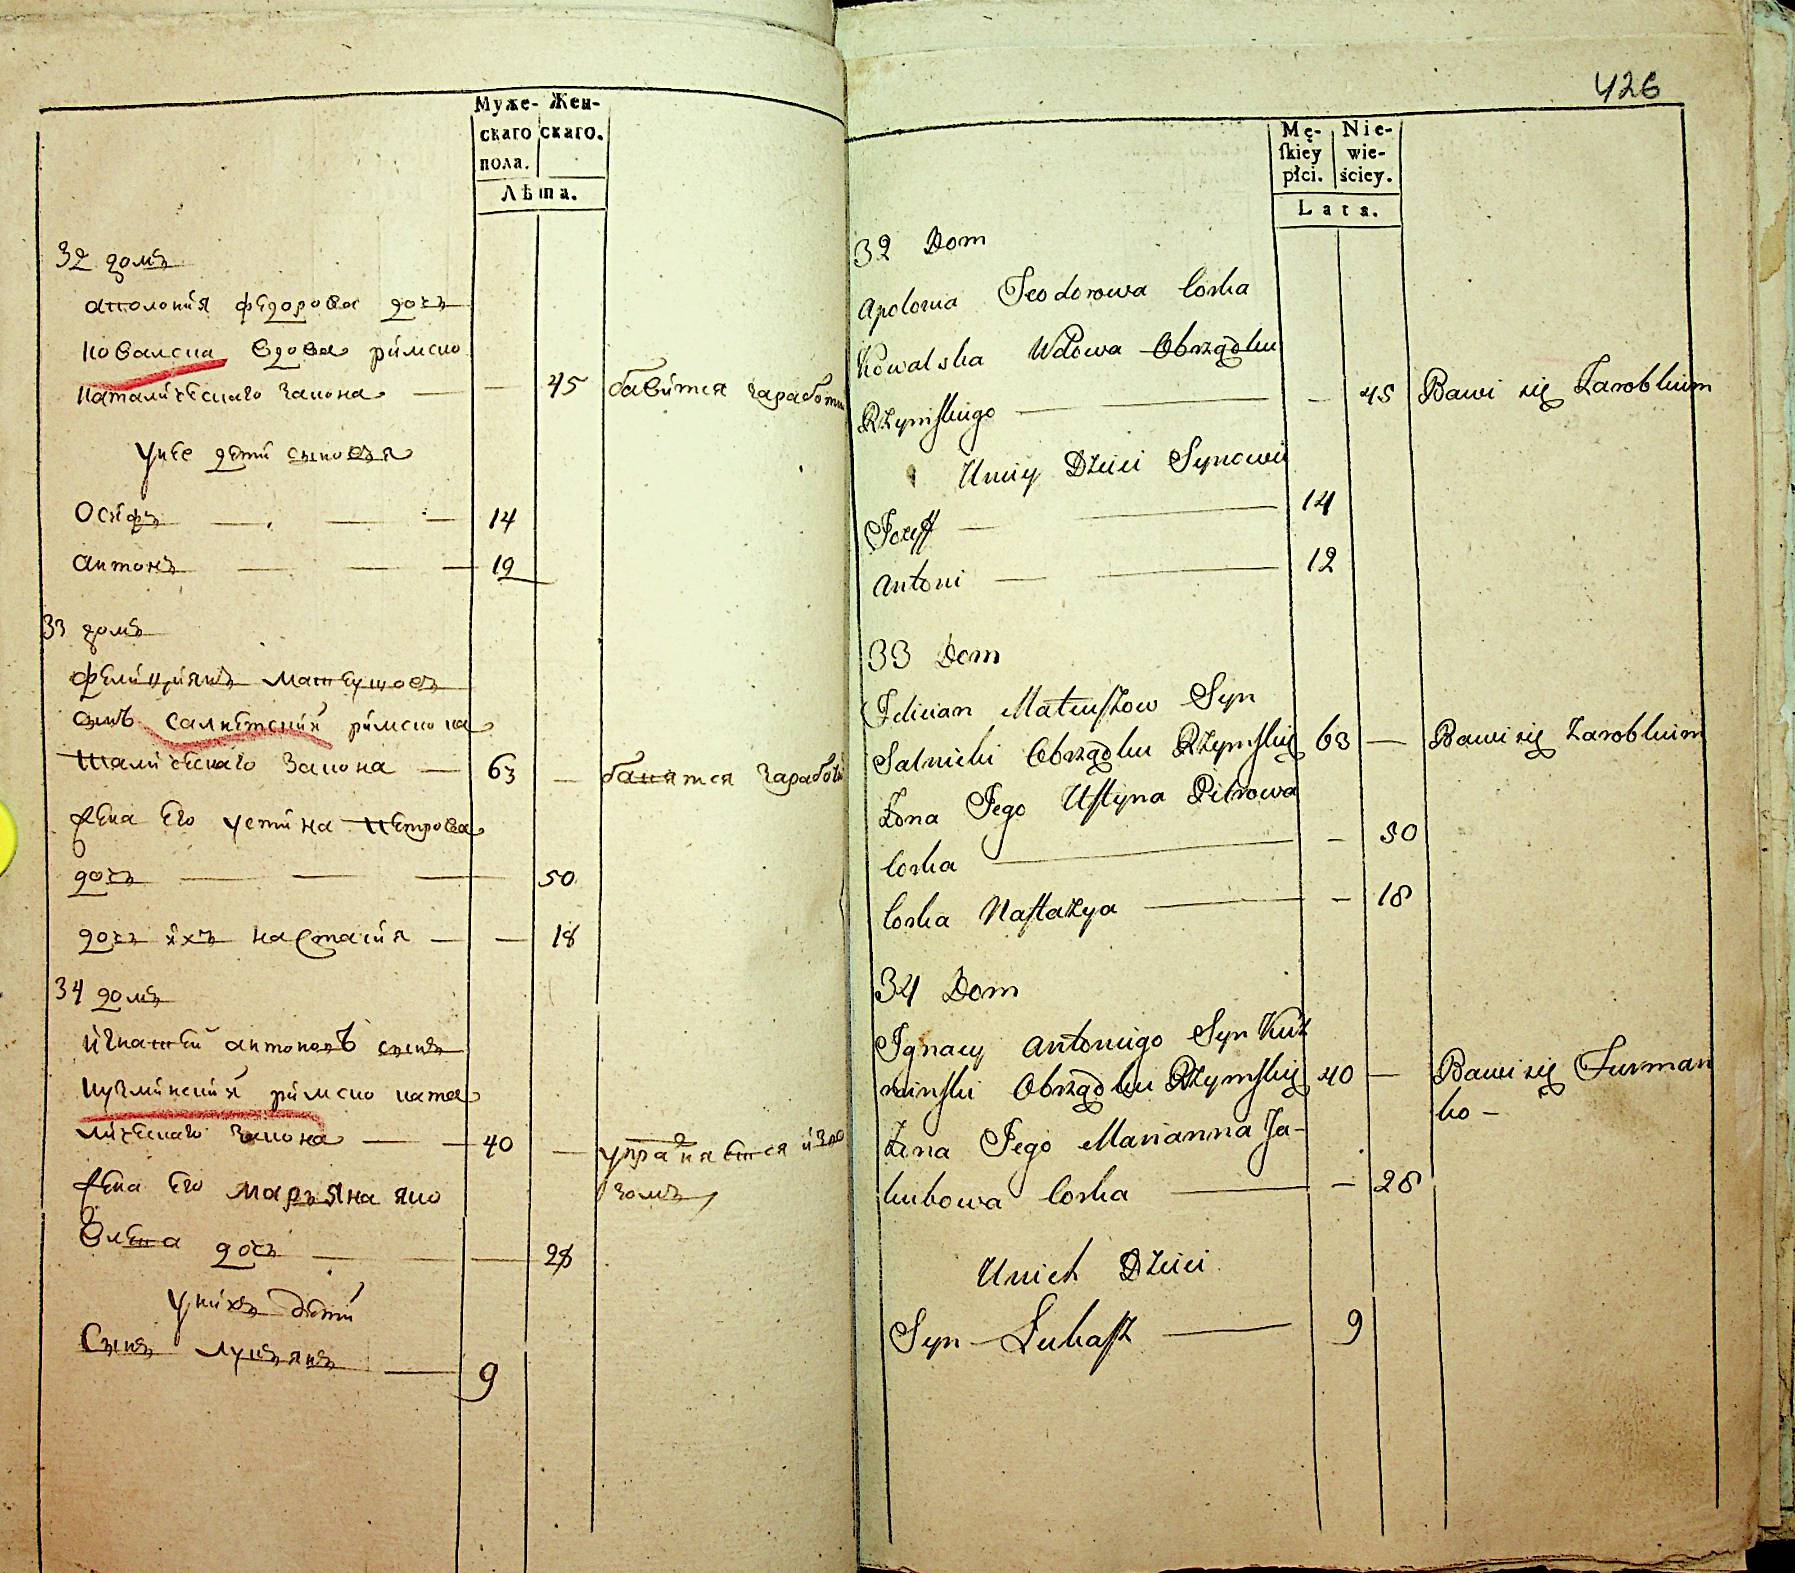 Муже- Жен-
скаго скаго.
пола.
Лѣта.
32 домъ
аполония федорова дочь
ковалска вдова римско
католическаго закона — — 45 бавится заработк
у нее дети сыновья
Осифъ — — — 14
антонъ — — — 12
33 домъ
фелициянъ матеушовъ
сынъ салнетский римско ка
толическаго закона — 63 — бавится заработк
жена его устина петрова
дочь — — — 50
дочь ихъ настасия — — 18
34 домъ
игнатей антоновъ сынъ
кузминский римско като
лическаго закона — 40 — упражняется изво
жена его марьяна яко зомъ
влева дочь — — 28
у нихъ дети
Сынъ лукъянъ — 9
426
Mę- Nie-
skiey wie-
płci. ściey.
Lata.
32 Dom
Apolonia Teodorowa Corka
Kowalska Wdowa Obrządku
Rzymskiego — — 45 Bawi się Zarobkiem
U niey Dzieci Synowie
Jozeff — — 14
Antoni — — 12
33 Dom
Felician Mateuszow Syn
Salnicki Obrządku Rzymskieg 63 — Bawi się Zarobkiem
Zona Jego Ustyna Pitrowa
Corka — — 50
Corka Nastazya — — 18
34 Dom
Ignacy Antoniego Syn Kuz
minski Obrządku Rzymskieg 40 — Bawi się Furman
ko –
Zona Jego Marianna Ja-
kubowa Corka — — 28
U nich Dzieci
Syn — Łukasz — 9